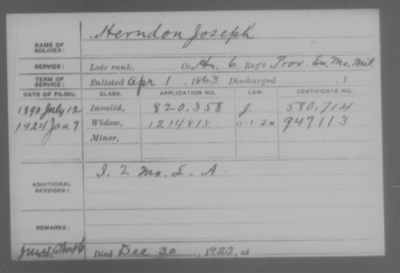 Herndon Joseph
NAME OF SOLDIER:
SERVICE: Late rank, Co. H, 6 Reg't Prov. En. Mo. Mil.
TERM OF SERVICE: Enlisted Apr 1, 1863 Discharged , 1
DATE OF FILING. CLASS. APPLICATION NO. LAW. CERTIFICATE NO.
1890 July 12 Invalid, 820.358 580.714
1924 Jan 7 Widow, 1214818 947113
Minor,
ADDITIONAL SERVICES: I. 2 Mo. L. A.
REMARKS:
Died Dec 30, 1923, at